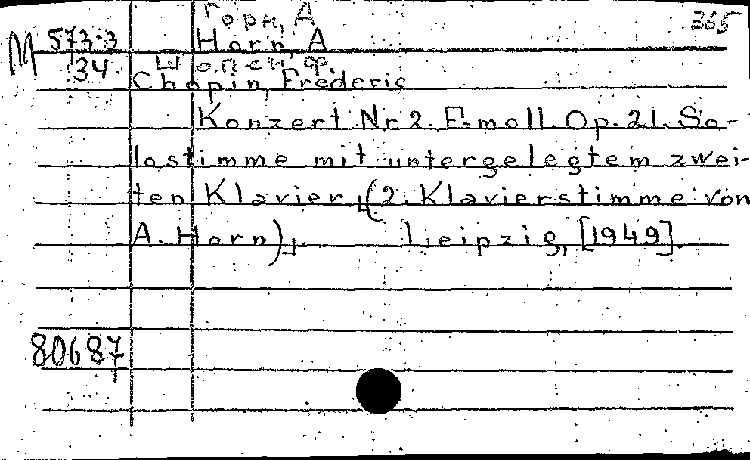 Горн, А. 365
М 573-3 Horn, A
34 Шопен, Ф.
Chopin, Frederic
Konzert Nr 2. F-moll Op. 21. So-
lostimme mit untergelegtem zwei-
ten Klavier (2. Klavierstimme von
A. Horn) Leipzig, [1949]
80687